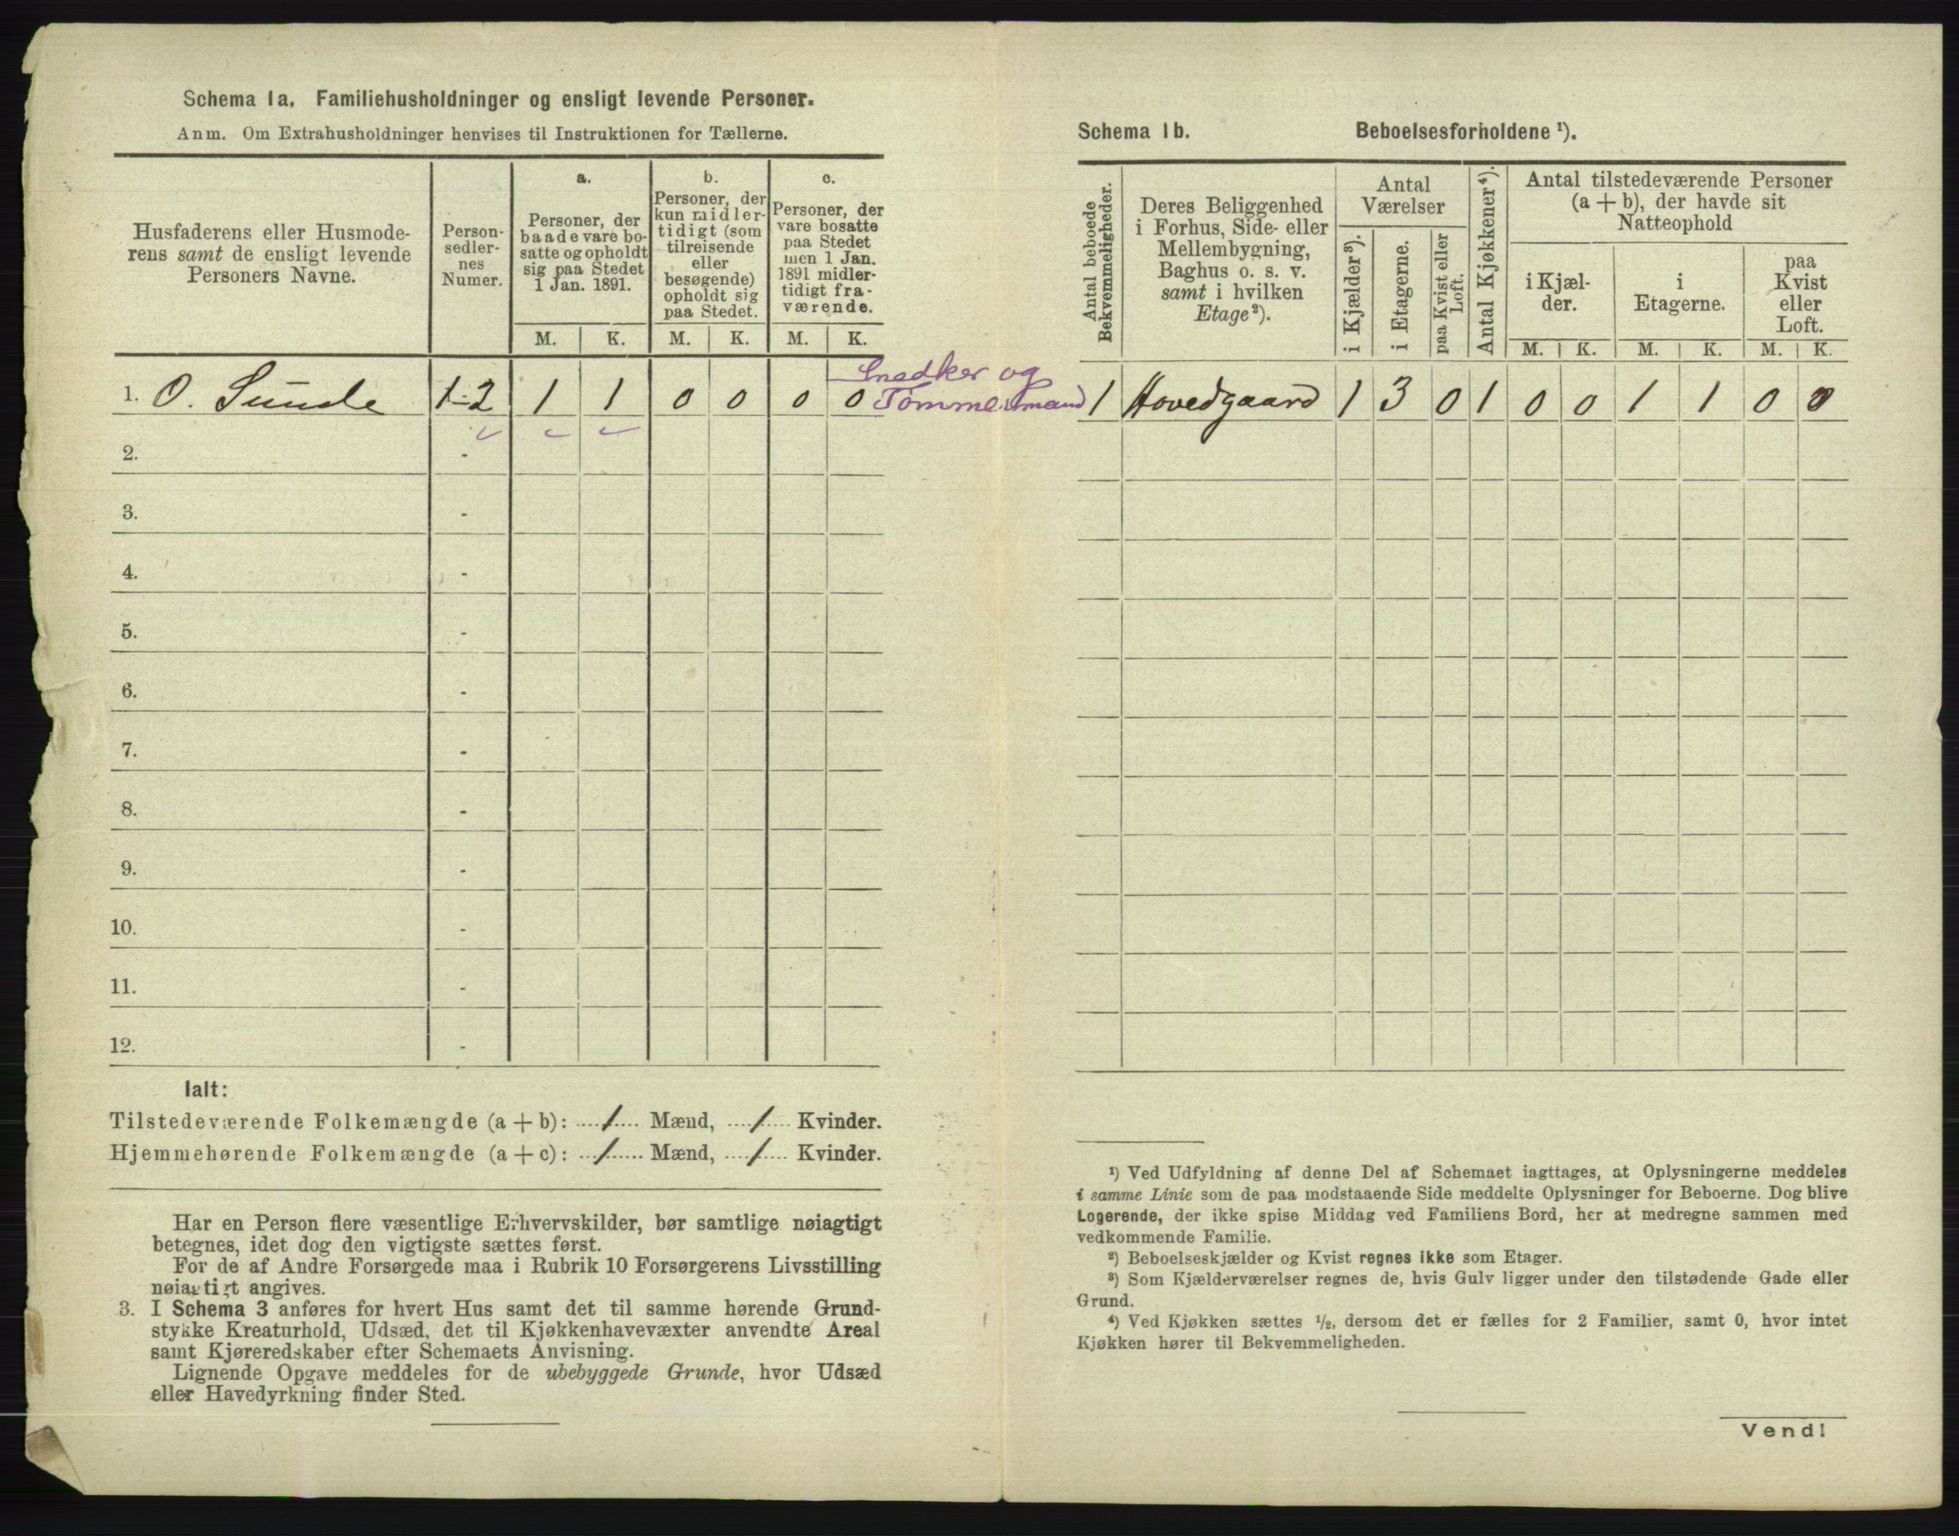 Schema 1a. Familiehusholdninger og ensligt levende Personer.
Anm. Om Extrahusholdninger henvises til Instruktionen for Tællerne.
Husfaderens eller Husmode-
rens samt de ensligt levende
Personers Navne.
Person-
sedler-
nes
Numer.
a.
Personer, der
baade vare bo-
satte og opholdt
sig paa Stedet
1 Jan. 1891.
b.
Personer, der
kun midler-
tidigt (som
tilreisende
eller
besøgende)
opholdt sig
paa Stedet.
c.
Personer, der
vare bosatte
paa Stedet
men 1 Jan.
1891 midler-
tidigt fra-
værende.
M. K. M. K. M. K.
1. O. Sunde 1-2 1 1 0 0 0 0
Snedker og
Tømmermand
2. -
3. -
4. -
5. -
6. -
7. -
8. -
9. -
10. -
11. -
12. -
Ialt:
Tilstedeværende Folkemængde (a + b): 1 Mænd, 1 Kvinder.
Hjemmehørende Folkemængde (a + c): 1 Mænd, 1 Kvinder.
Har en Person flere væsentlige Erhvervskilder, bør samtlige nøiagtigt
betegnes, idet dog den vigtigste sættes først.
For de af Andre Forsørgede maa i Rubrik 10 Forsørgerens Livsstilling
nøiagtigt angives.
3. I Schema 3 anføres for hvert Hus samt det til samme hørende Grund-
stykke Kreaturhold, Udsæd, det til Kjøkkenhavevæxter anvendte Areal
samt Kjøreredskaber efter Schemaets Anvisning.
Lignende Opgave meddeles for de ubebyggede Grunde, hvor Udsæd
eller Havedyrkning finder Sted.
Schema 1b. Beboelsesforholdene ¹).
Antal beboede
Bekvemmeligheder.
Deres Beliggenhed
i Forhus, Side- eller
Mellembygning,
Baghus o. s. v.
samt i hvilken
Etage²).
Antal
Værelser
i Kjælder³).
i Etagerne.
paa Kvist eller
Loft.
Antal Kjøkkener⁴).
Antal tilstedeværende Personer
(a + b), der havde sit
Natteophold
i Kjæl-
der.
i
Etagerne.
paa
Kvist
eller
Loft.
M. K. M. K. M. K.
1 Hovedgaard 1 3 0 1 0 0 1 1 0 0
¹) Ved Udfyldning af denne Del af Schemaet iagttages, at Oplysningerne meddeles
i samme Linie som de paa modstaaende Side meddelte Oplysninger for Beboerne. Dog blive
Logerende, der ikke spise Middag ved Familiens Bord, her at medregne sammen med
vedkommende Familie.
²) Beboelseskjælder og Kvist regnes ikke som Etager.
³) Som Kjælderværelser regnes de, hvis Gulv ligger under den tilstødende Gade eller
Grund.
⁴) Ved Kjøkken sættes ½, dersom det er fælles for 2 Familier, samt 0, hvor intet
Kjøkken hører til Bekvemmeligheden.
Vend!